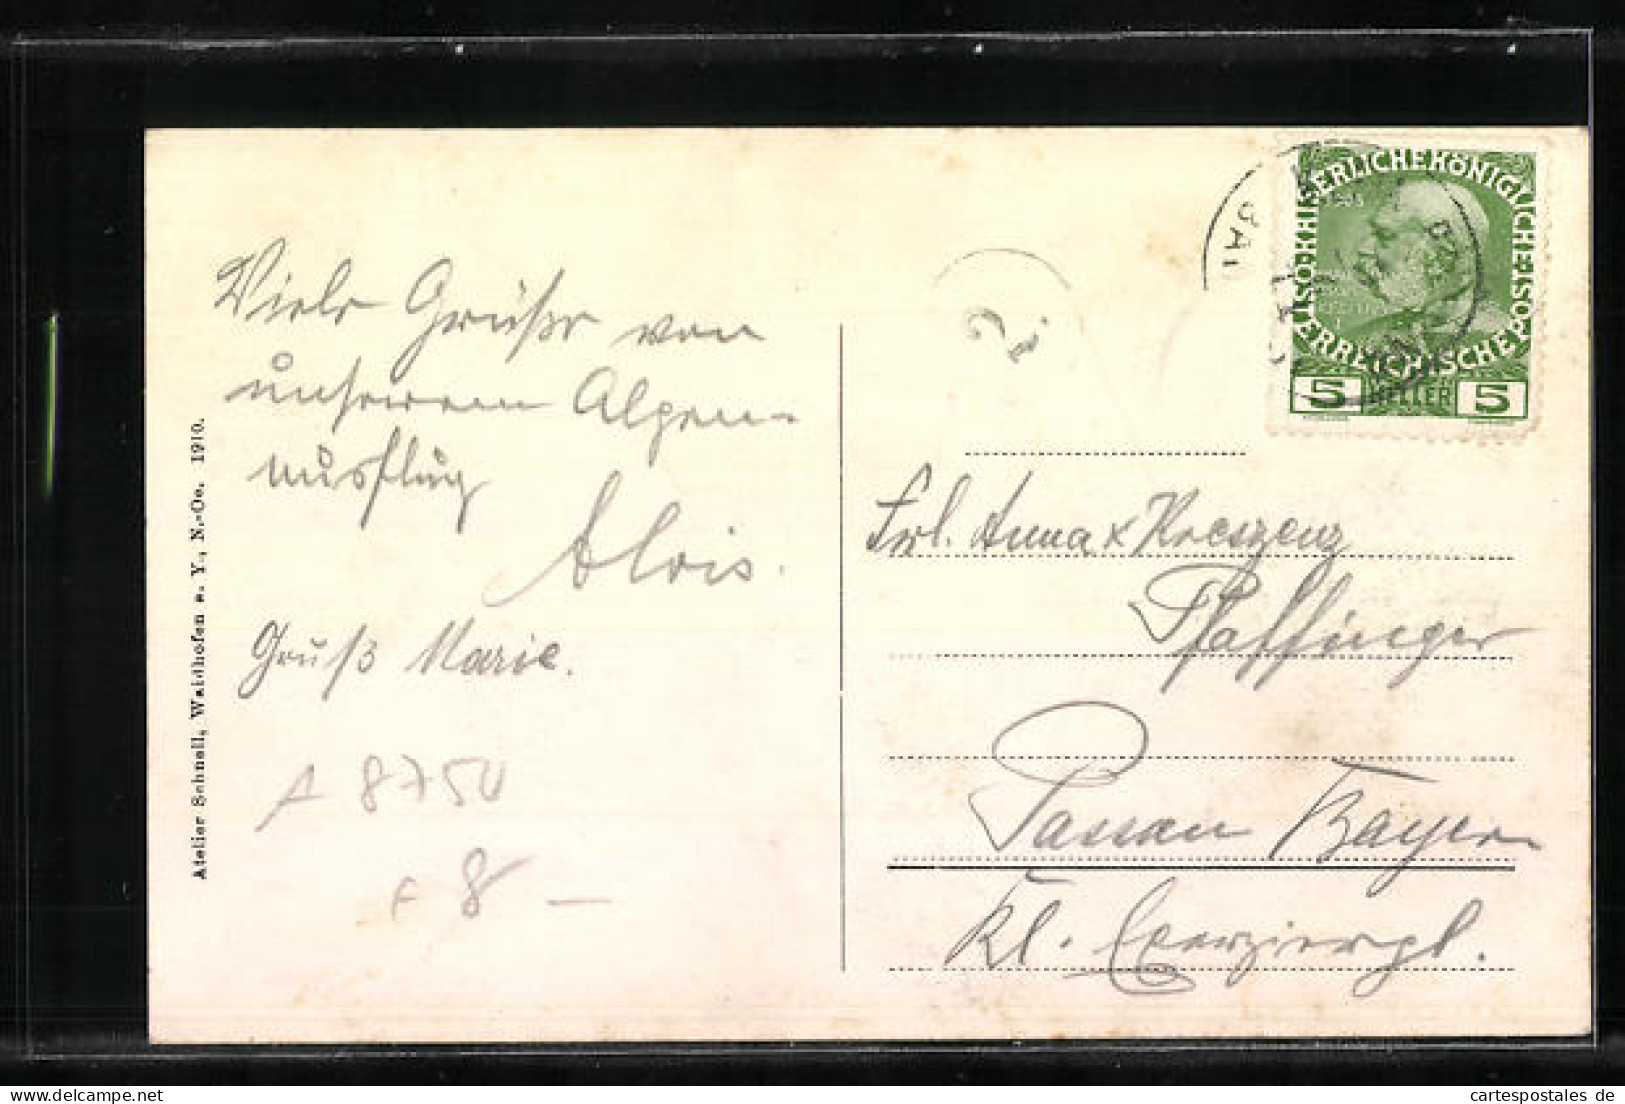 Viele Grüße von
unserem Alpen-
ausflug
Alois.
Gruß Marie.
A 8750
F 8 —
Atelier Schnell, Waidhofen a. Y., N.-Oe. 1910.
KAISERLICHE KÖNIGLICHE ÖSTERREICHISCHE POST
5 HELLER 5
Frl. Anna x Kreszenz
Pfaffinger
Passau Bayern
Kl. Exerzierpl.
cartespostales de